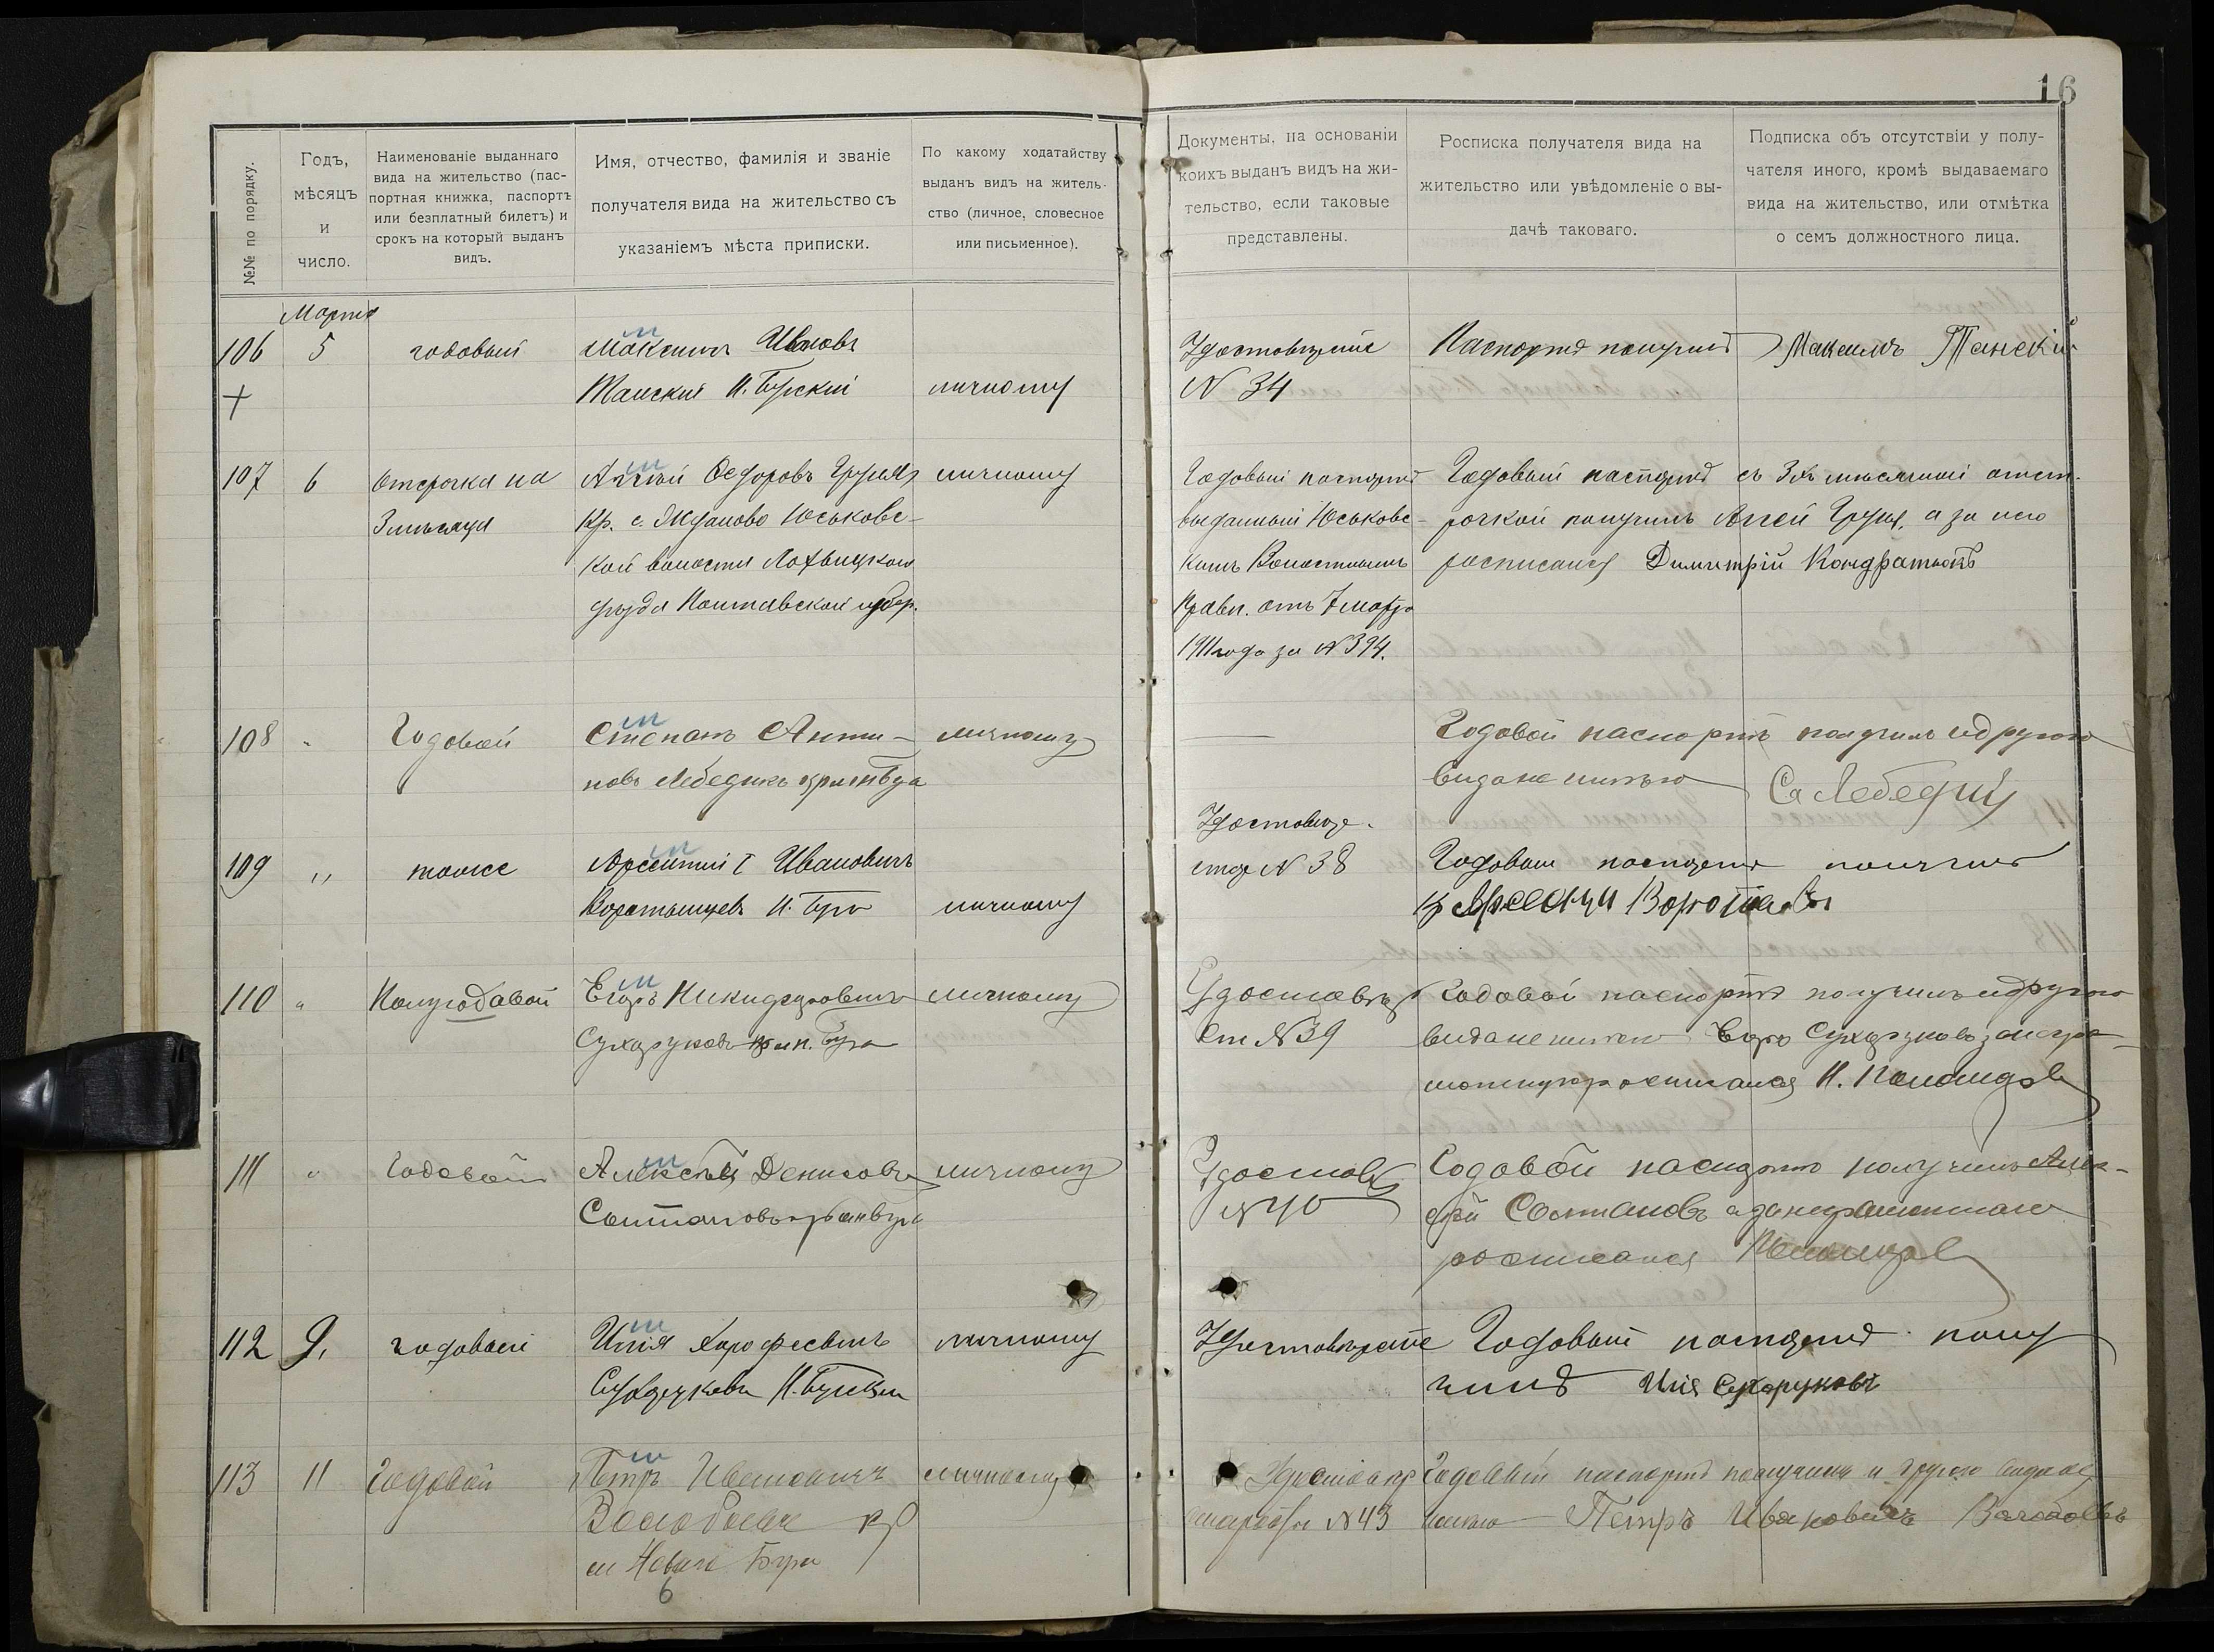 16
№№ по порядку.
Годъ,
мѣсяцъ
и
число.
Наименованіе выданнаго
вида на жительство (пас-
портная книжка, паспортъ
или безплатный билетъ) и
срокъ на который выданъ
видъ.
Имя, отчество, фамилія и званіе
получателя вида на жительство съ
указаніемъ мѣста приписки.
По какому ходатайству
выданъ видъ на житель-
ство (личное, словесное
или письменное).
Документы, на основаніи
коихъ выданъ видъ на жи-
тельство, если таковые
представлены.
Росписка получателя вида на
жительство или увѣдомленіе о вы-
дачѣ таковаго.
Подписка объ отсутствіи у полу-
чателя иного, кромѣ выдаваемаго
вида на жительство, или отмѣтка
о семъ должностного лица.
Марта
106 5 годовый Максимъ Ивановъ
Танскій Н. Бугскій личному
+
Удостовѣреніе
N 34
Паспортъ получилъ Максимъ Танскій
107 6 Отсрочка на
3 мѣсяца
Агѣй Федоровъ
Кр. с. Жданово Юськовс-
кой волости Лохвицкаго
уѣзда Полтавской губер.
личному
Годовый паспортъ
выданный Юськовс-
кимъ Волостнымъ
Правл. отъ 7 марта
1911 года за N 394.
Годовый паспортъ съ 3х мѣсячной отст-
рочкой получилъ Агей а за него
росписался Димитрій
108 " Годовой Степанъ Анти-
повъ Лебедикъ
личному
Годовой паспортъ получилъ и другого
вида не имѣю Ст Лебедик
109 " тоже Арсентий I Ивановичъ
Н. Буга личному
Удостовѣре-
N 38
Годовый паспортъ получилъ
110 " Полугодовой Егоръ Никифоровичъ
Сухоруковъ Н. Буга
личному
Удостовѣр
N 39
Годовой паспортъ получилъ и другого
вида не имѣю Егоръ Сухоруковъ
росписался Н.
111 " Годовой Алексѣй Денисовъ
личному
Удостов
N 40
Годовой паспортъ получилъ Алек-
сѣй а за неграмотнаго
росписался
112 9. годовый Илія
Сухоруковъ Н. Буга
личному
Удостовѣреніе
Годовый паспортъ полу
чилъ Илія Сухоруковъ
113 11 Годовой Петръ Ивановичъ
кр
м Новаго Буга
личному
N 43
Годовый паспортъ получилъ и другого вида не
имѣю Петръ Ивановичъ
6